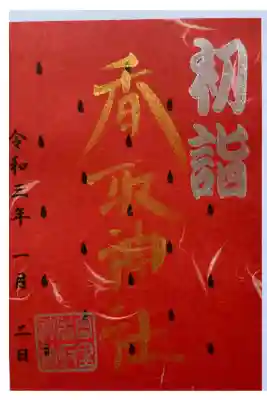 初詣
香取神社
令和三年 一月 二日